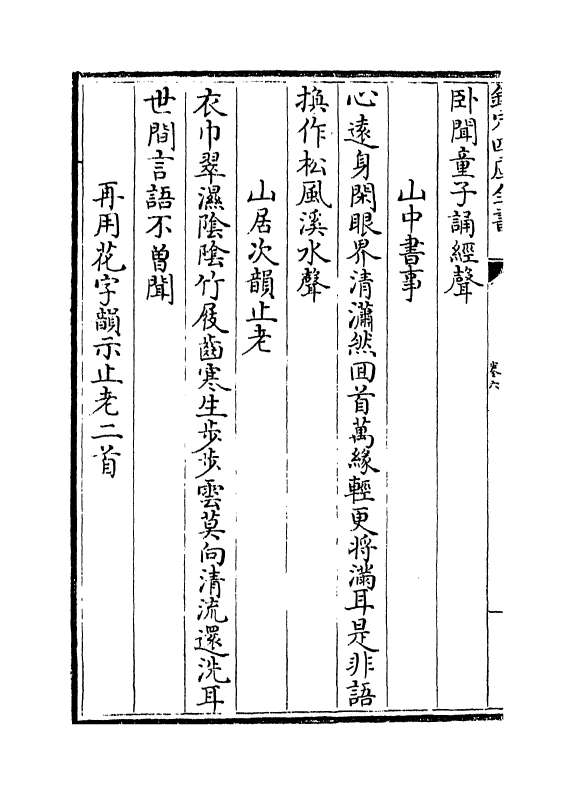 欽定四庫全書
卷六
卧聞童子誦經聲
山中書事
心遠身閑眼界清瀟然回首萬緣輕更將滿耳是非語
換作松風溪水聲
山居次韻止老
衣巾翠濕陰陰竹屐齒寒生步步雲莫向清流還洗耳
世間言語不曽聞
再用花字韻示止老二首